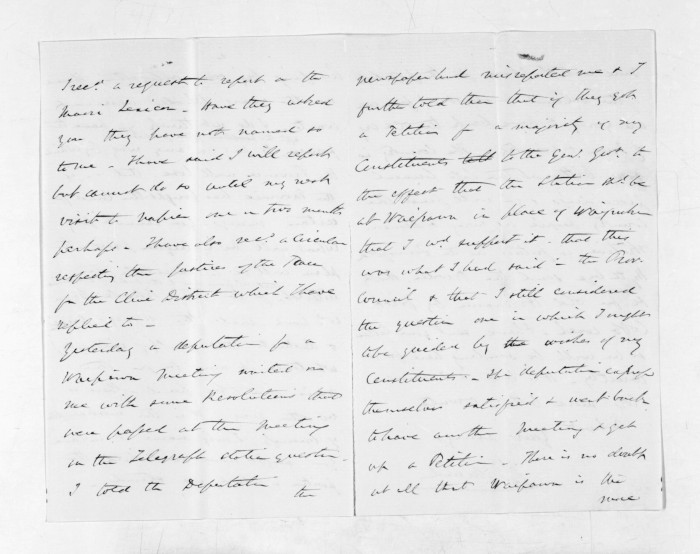 I recd a request to report on the
Maori Lexicon - Have they asked
you they have not named so
to me - I have said I will report
but cannot do so until my next
visit to Napier one or two months
perhaps - I have also recd a Circular
respecting the Justices of the Peace
for the Clive District which I have
replied to -
Yesterday a deputation fr a
Waipawa Meeting waited on
me with some Resolutions that
were passed at the Meeting
on the Telegraph station question -
I told the Deputation
the
newspaper had misreported me & I
further told them that if they got
a Petition fr a majority of my
Constituents told to the Genl Govt to
the effect that the Station shd be
at Waipawa in place of Waipukurau
that I wd support it - that this
was what I had said in the Prov.
Council & that I still considered
the question one in which I ought
to be guided by the wishes of my
Constituents - The deputation expressed
themselves satisfied & went back
to have another Meeting & get
up a Petition - There is no doubt
at all that Waipawa is the
more